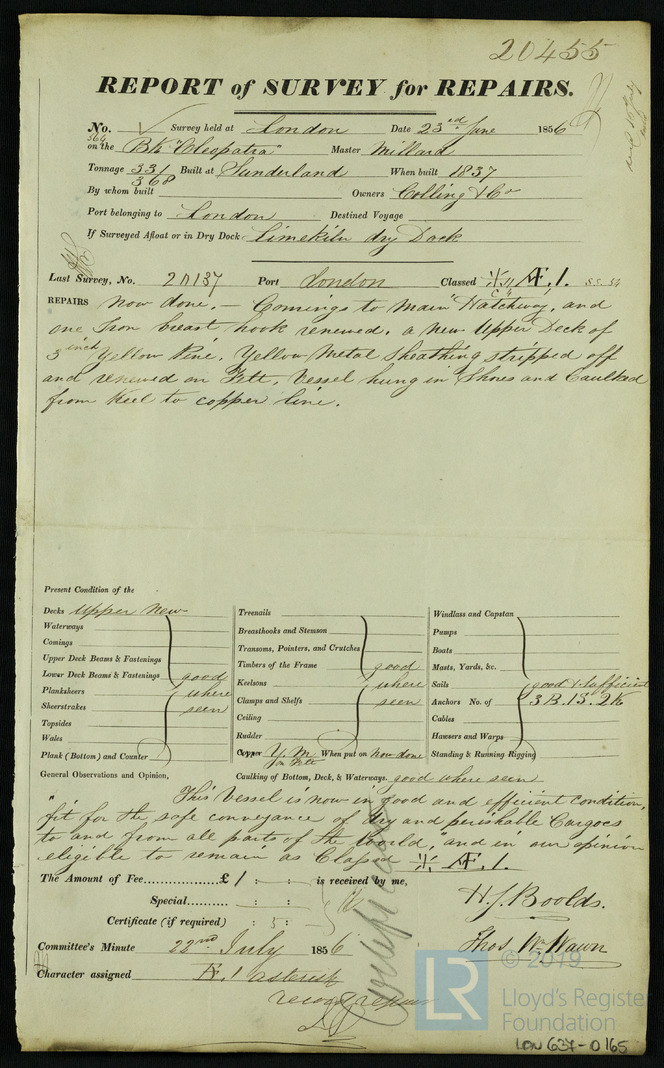 20455
REPORT of SURVEY for REPAIRS.
No. Survey held at London Date 23rd June 1856
564
on the Bk "Cleopatra" Master Millard
Tonnage 331 Built at Sunderland When built 1837
368
By whom built Owners Colling & Co
Port belonging to London Destined Voyage
If Surveyed Afloat or in Dry Dock Limekiln dry Dock
Last Survey, No. 20137 Port London Classed Æ. 1.
REPAIRS now done. Comings to Main Hatchway, and
one Iron breast hook renewed, a new Upper Deck of
3 inch Yellow Pine, Yellow Metal Sheathing stripped off
and renewed on Felt, Vessel hung in Shores and Caulked
from Keel to copper line.
Present Condition of the
Decks Upper New
Waterways
Comings
Upper Deck Beams & Fastenings
Lower Deck Beams & Fastenings good
Planksheers where
Sheerstrakes seen
Topsides
Wales
Plank (Bottom) and Counter
Treenails
Breasthooks and Stemson
Transoms, Pointers, and Crutches
Timbers of the Frame good
Keelsons where
Clamps and Shelfs seen
Ceiling
Rudder
Copper Y.M. When put on now done
on Felt
Windlass and Capstan
Pumps
Boats
Masts, Yards, &c.
Sails good & sufficient
Anchors No. of 3 B. 1 S. 2 K
Cables
Hawsers and Warps
Standing & Running Rigging
General Observations and Opinion, Caulking of Bottom, Deck, & Waterways. good where seen
This Vessel is now in good and efficient condition,
"fit for the safe conveyance of dry and perishable Cargoes
to and from all parts of the World," and in our opinion
eligible to remain as Classed Æ. 1.
The Amount of Fee............... £ 1 : : is received by me,
Special.......... : :
Certificate (if required) : 5 :
H. J. Boolds.
Thos Wm Wawn
Committee's Minute 22nd July 1856
Character assigned Æ. 1 asterisk
record repairs
Certificate
© 2019
LR
Lloyd's Register
Foundation
LON 637-0165